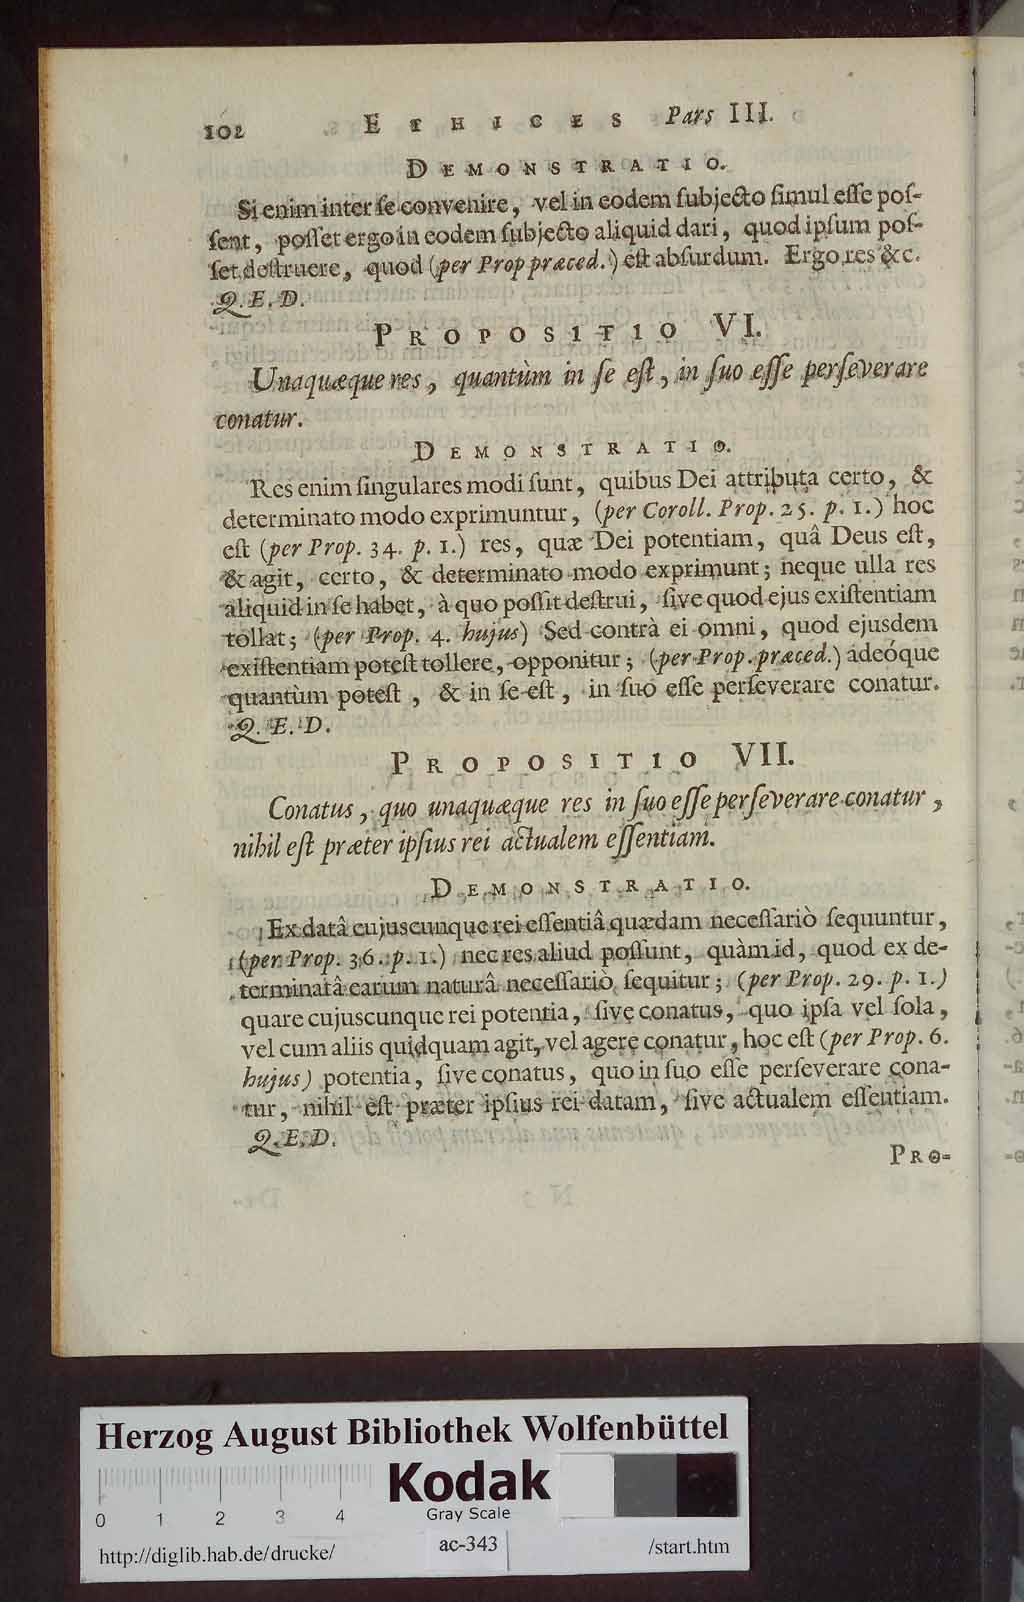 102 ETHICES Pars III.
DEMONSTRATIO.
Si enim inter ſe convenire, vel in eodem ſubjecto ſimul eſſe poſ-
ſent, poſſet ergo in eodem ſubjecto aliquid dari, quod ipſum poſ-
ſet deſtruere, quod (per Prop præced.) eſt abſurdum. Ergo res &c.
Q. E. D.
PROPOSITIO VI.
Unaquæque res, quantùm in ſe eſt, in ſuo eſſe perſeverare
conatur.
DEMONSTRATIO.
Res enim ſingulares modi ſunt, quibus Dei attributa certo, &
determinato modo exprimuntur, (per Coroll. Prop. 25. p. 1.) hoc
eſt (per Prop. 34. p. 1.) res, quæ Dei potentiam, quâ Deus eſt,
& agit, certo, & determinato modo exprimunt; neque ulla res
aliquid in ſe habet, à quo poſſit deſtrui, ſive quod ejus exiſtentiam
tollat; (per Prop. 4. hujus) Sed contrà ei omni, quod ejusdem
exiſtentiam poteſt tollere, opponitur; (per Prop. præced.) adeóque
quantùm poteſt, & in ſe eſt, in ſuo eſſe perſeverare conatur.
Q. E. D.
PROPOSITIO VII.
Conatus, quo unaquæque res in ſuo eſſe perſeverare conatur,
nihil eſt præter ipſius rei actualem eſſentiam.
DEMONSTRATIO.
Ex datâ cujuscunque rei eſſentiâ quædam neceſſariò ſequuntur,
(per Prop. 36. p. 1.) nec res aliud poſſunt, quàm id, quod ex de-
terminatâ earum naturâ neceſſariò ſequitur; (per Prop. 29. p. 1.)
quare cujuscunque rei potentia, ſive conatus, quo ipſa vel ſola,
vel cum aliis quidquam agit, vel agere conatur, hoc eſt (per Prop. 6.
hujus) potentia, ſive conatus, quo in ſuo eſſe perſeverare cona-
tur, nihil eſt præter ipſius rei datam, ſive actualem eſſentiam.
Q. E. D.
PRO-
Herzog August Bibliothek Wolfenbüttel
Kodak
Gray Scale
0 1 2 3 4
http://diglib.hab.de/drucke/ ac-343 /start.htm